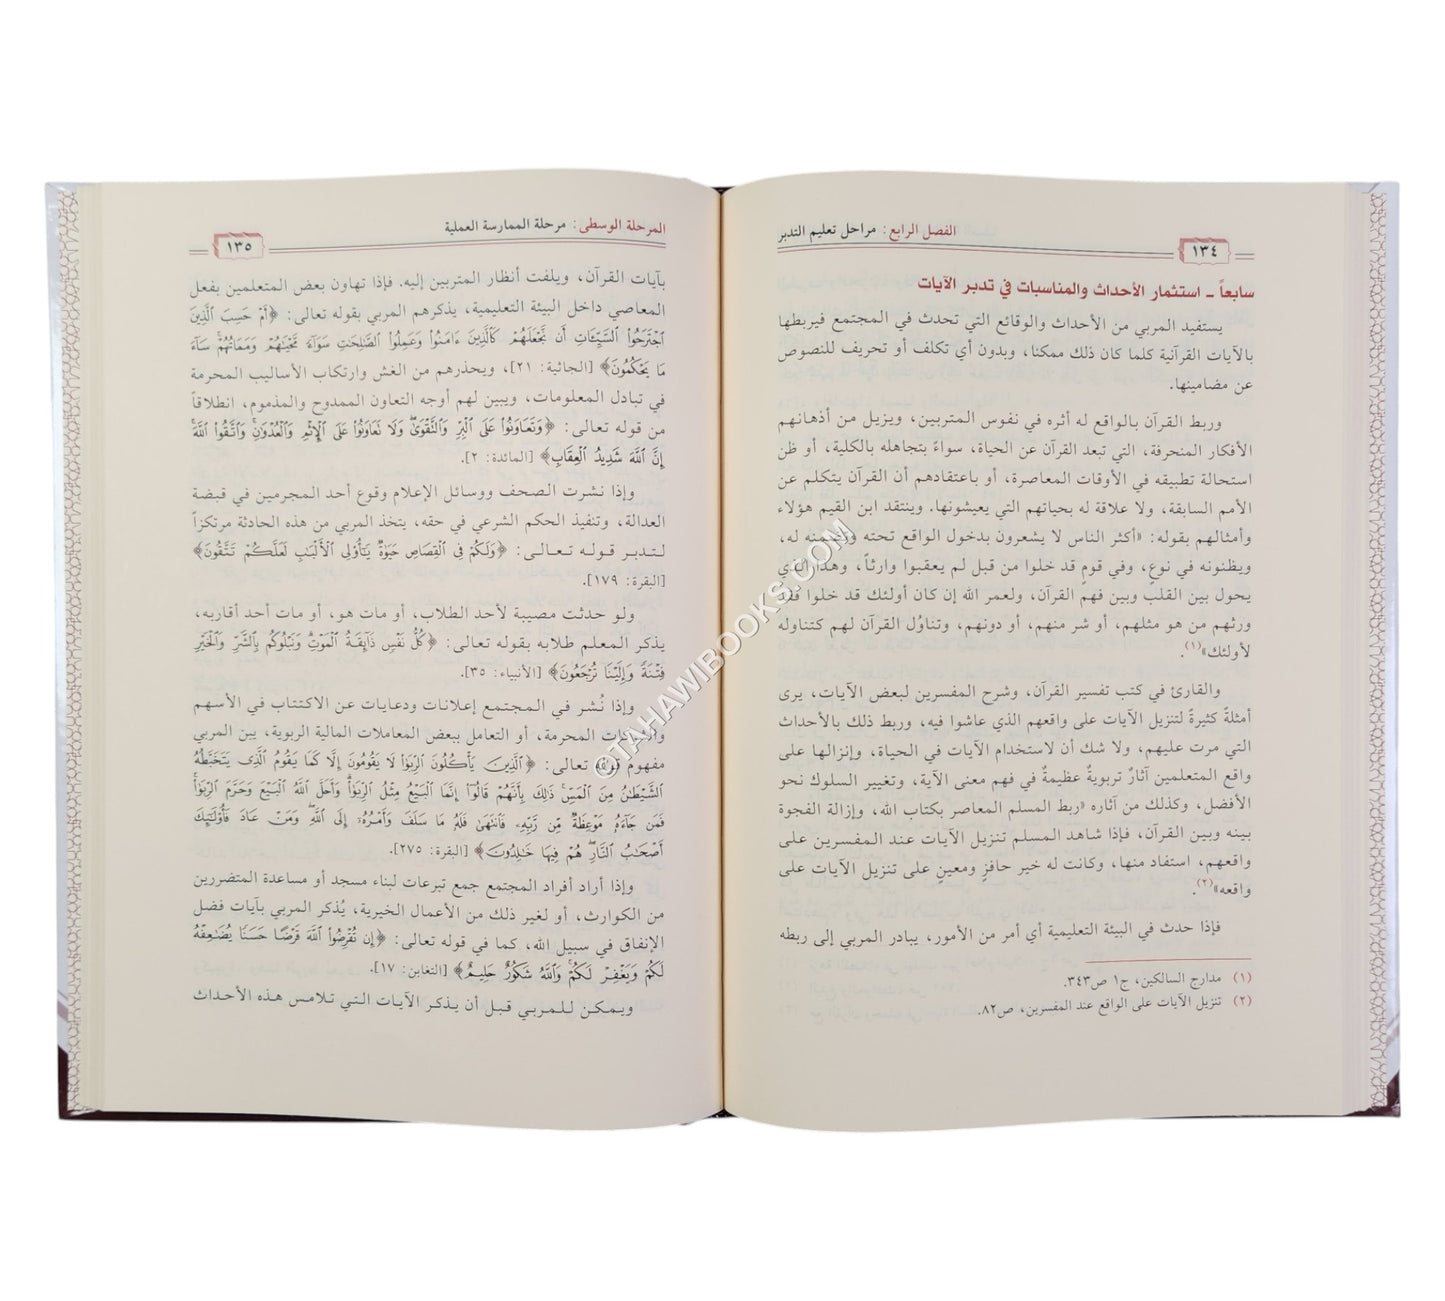 الفصل الرابع: مراحل تعليم التدبر
١٣٤
سابعاً ـ استثمار الأحداث والمناسبات في تدبر الآيات
يستفيد المربي من الأحداث والوقائع التي تحدث في المجتمع فيربطها
بالآيات القرآنية كلما كان ذلك ممكنا، وبدون أي تكلف أو تحريف للنصوص
عن مضامينها.
وربط القرآن بالواقع له أثره في نفوس المتربين، ويزيل من أذهانهم
الأفكار المنحرفة، التي تبعد القرآن عن الحياة، سواءً بتجاهله بالكلية، أو ظن
استحالة تطبيقه في الأوقات المعاصرة، أو باعتقادهم أن القرآن يتكلم عن
الأمم السابقة، ولا علاقة له بحياتهم التي يعيشونها. وينتقد ابن القيم هؤلاء
وأمثالهم بقوله: «أكثر الناس لا يشعرون بدخول الواقع تحته وتضمنه له،
ويظنونه في نوعٍ، وفي قومٍ قد خلوا من قبل لم يعقبوا وارثاً، وهذا الذي
يحول بين القلب وبين فهم القرآن، ولعمر الله إن كان أولئك قد خلوا فقد
ورثهم من هو مثلهم، أو شر منهم، أو دونهم، وتناوُل القرآن لهم كتناوله
لأولئك»(١).
والقارئ في كتب تفسير القرآن، وشرح المفسرين لبعض الآيات، يرى
أمثلةً كثيرةً لتنزيل الآيات على واقعهم الذي عاشوا فيه، وربط ذلك بالأحداث
التي مرت عليهم، ولا شك أن لاستخدام الآيات في الحياة، وإنزالها على
واقع المتعلمين آثارٌ تربويةٌ عظيمةٌ في فهم معنى الآية، وتغيير السلوك نحو
الأفضل، وكذلك من آثاره «ربط المسلم المعاصر بكتاب الله، وإزالة الفجوة
بينه وبين القرآن، فإذا شاهد المسلم تنزيل الآيات عند المفسرين على
واقعهم، استفاد منها، وكانت له خير حافزٍ ومعينٍ على تنزيل الآيات على
واقعه»(٢).
فإذا حدث في البيئة التعليمية أي أمر من الأمور، يبادر المربي إلى ربطه
(١) مدارج السالكين، ج١ ص٣٤٣.
(٢) تنزيل الآيات على الواقع عند المفسرين، ص٨٢.
المرحلة الوسطى: مرحلة الممارسة العملية
١٣٥
بآيات القرآن، ويلفت أنظار المتربين إليه. فإذا تهاون بعض المتعلمين بفعل
المعاصي داخل البيئة التعليمية، يذكرهم المربي بقوله تعالى: ﴿أَمْ حَسِبَ ٱلَّذِينَ
ٱجْتَرَحُوا۟ ٱلسَّيِّـَٔاتِ أَن نَّجْعَلَهُمْ كَٱلَّذِينَ ءَامَنُوا۟ وَعَمِلُوا۟ ٱلصَّـٰلِحَـٰتِ سَوَآءً مَّحْيَاهُمْ وَمَمَاتُهُمْ ۚ سَآءَ
مَا يَحْكُمُونَ﴾ [الجاثية: ٢١]، ويحذرهم من الغش وارتكاب الأساليب المحرمة
في تبادل المعلومات، ويبين لهم أوجه التعاون الممدوح والمذموم، انطلاقاً
من قوله تعالى: ﴿وَتَعَاوَنُوا۟ عَلَى ٱلْبِرِّ وَٱلتَّقْوَىٰ ۖ وَلَا تَعَاوَنُوا۟ عَلَى ٱلْإِثْمِ وَٱلْعُدْوَٰنِ ۚ وَٱتَّقُوا۟ ٱللَّهَ ۖ
إِنَّ ٱللَّهَ شَدِيدُ ٱلْعِقَابِ﴾ [المائدة: ٢].
وإذا نشرت الصحف ووسائل الإعلام وقوع أحد المجرمين في قبضة
العدالة، وتنفيذ الحكم الشرعي في حقه، يتخذ المربي من هذه الحادثة مرتكزاً
لتدبر قوله تعالى: ﴿وَلَكُمْ فِى ٱلْقِصَاصِ حَيَوٰةٌ يَـٰٓأُو۟لِى ٱلْأَلْبَـٰبِ لَعَلَّكُمْ تَتَّقُونَ﴾
[البقرة: ١٧٩].
ولو حدثت مصيبة لأحد الطلاب، أو مات هو، أو مات أحد أقاربه،
يذكر المعلم طلابه بقوله تعالى: ﴿كُلُّ نَفْسٍ ذَآئِقَةُ ٱلْمَوْتِ ۗ وَنَبْلُوكُم بِٱلشَّرِّ وَٱلْخَيْرِ
فِتْنَةً ۖ وَإِلَيْنَا تُرْجَعُونَ﴾ [الأنبياء: ٣٥].
وإذا نُشر في المجتمع إعلانات ودعايات عن الاكتتاب في الأسهم
والشركات المحرمة، أو التعامل ببعض المعاملات المالية الربوية، يبن المربي
مفهوم قوله تعالى: ﴿ٱلَّذِينَ يَأْكُلُونَ ٱلرِّبَوٰا۟ لَا يَقُومُونَ إِلَّا كَمَا يَقُومُ ٱلَّذِى يَتَخَبَّطُهُ
ٱلشَّيْطَـٰنُ مِنَ ٱلْمَسِّ ۚ ذَٰلِكَ بِأَنَّهُمْ قَالُوٓا۟ إِنَّمَا ٱلْبَيْعُ مِثْلُ ٱلرِّبَوٰا۟ ۗ وَأَحَلَّ ٱللَّهُ ٱلْبَيْعَ وَحَرَّمَ ٱلرِّبَوٰا۟ ۚ
فَمَن جَآءَهُۥ مَوْعِظَةٌ مِّن رَّبِّهِۦ فَٱنتَهَىٰ فَلَهُۥ مَا سَلَفَ وَأَمْرُهُۥٓ إِلَى ٱللَّهِ ۖ وَمَنْ عَادَ فَأُو۟لَـٰٓئِكَ
أَصْحَـٰبُ ٱلنَّارِ ۖ هُمْ فِيهَا خَـٰلِدُونَ﴾ [البقرة: ٢٧٥].
وإذا أراد أفراد المجتمع جمع تبرعات لبناء مسجد أو مساعدة المتضررين
من الكوارث، أو لغير ذلك من الأعمال الخيرية، يُذكر المربي بآيات فضل
الإنفاق في سبيل الله، كما في قوله تعالى: ﴿إِن تُقْرِضُوا۟ ٱللَّهَ قَرْضًا حَسَنًا يُضَـٰعِفْهُ
لَكُمْ وَيَغْفِرْ لَكُمْ ۚ وَٱللَّهُ شَكُورٌ حَلِيمٌ﴾ [التغابن: ١٧].
ويمكن للمربي قبل أن يذكر الآيات التي تلامس هذه الأحداث
©TAHAWIBOOKS.COM